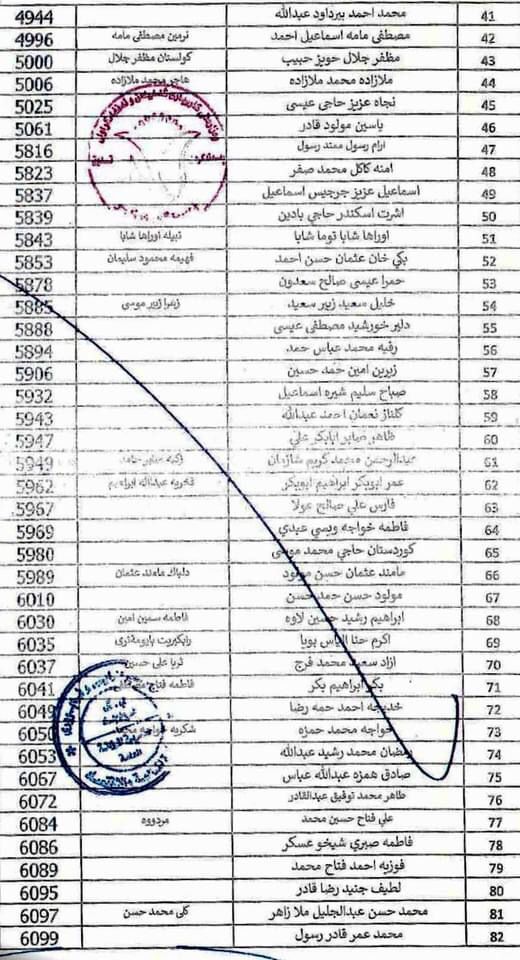 41 محمد احمد بيرداود عبدالله 4944
42 مصطفى مامه اسماعيل احمد نرمين مصطفى مامه 4996
43 مظفر جلال حويز حبيب كولستان مظفر جلال 5000
44 ملازاده محمد ملازاده هاجر محمد ملازاده 5006
45 نجاه عزيز حاجي عيسى 5025
46 ياسين مولود قادر 5061
47 ارام رسول ممند رسول 5816
48 امنه كاكل محمد صفر 5823
49 اسماعيل عزيز جرجيس اسماعيل 5837
50 اشرت اسكندر حاجي يادين 5839
51 اوراها شابا توما شابا نبيله اوراها شابا 5843
52 بكي خان عثمان حسن احمد فهيمه محمود سليمان 5853
53 حمرا عيسى صالح سعدون 5878
54 خليل سعيد زبير سعيد زهرا زبير موسى 5885
55 دلير خورشيد مصطفى عيسى 5888
56 رقيه محمد عباس حمد 5894
57 زيرين امين حمد حسين 5906
58 صباح سليم شيره اسماعيل 5932
59 كلناز نعمان احمد عبدالله 5943
60 طاهر صابر ابابكر علي 5947
61 عبدالرحمن محمد كريم 5949
62 عمر ابوبكر ابراهيم ابوبكر فخريه عبدالله ابراهيم 5962
63 فارس علي صالح مولا 5967
64 فاطمه خواجه ويسي عبدي 5969
65 كوردستان حاجي محمد موسى 5980
66 مامند عثمان حسن مولود دلباك مامند عثمان 5989
67 مولود حسن حمد حسن 6010
68 ابراهيم رشيد حسين لاوه فاطمه سمين امين 6030
69 اكرم حنا الياس بويا 6035
70 ازاد سعيد محمد فرج ثريا علي حسين 6037
71 بكر ابراهيم بكر فاطمه فتاح 6041
72 خديجه احمد حمه رضا 6049
73 خواجه محمد حمزه شكريه خواجه محمد 6050
74 رمضان محمد رشيد عبدالله 6053
75 صادق همزه عبدالله عباس 6067
76 طاهر محمد توفيق عبدالقادر 6072
77 علي فتاح حسين محمد مردووه 6084
78 فاطمه صبري شيخو عسكر 6086
79 فوزيه احمد فتاح محمد 6089
80 لطيف جنيد رضا قادر 6095
81 محمد حسن عبدالجليل ملا زاهر كلى محمد حسن 6097
82 محمد عمر قادر رسول 6099